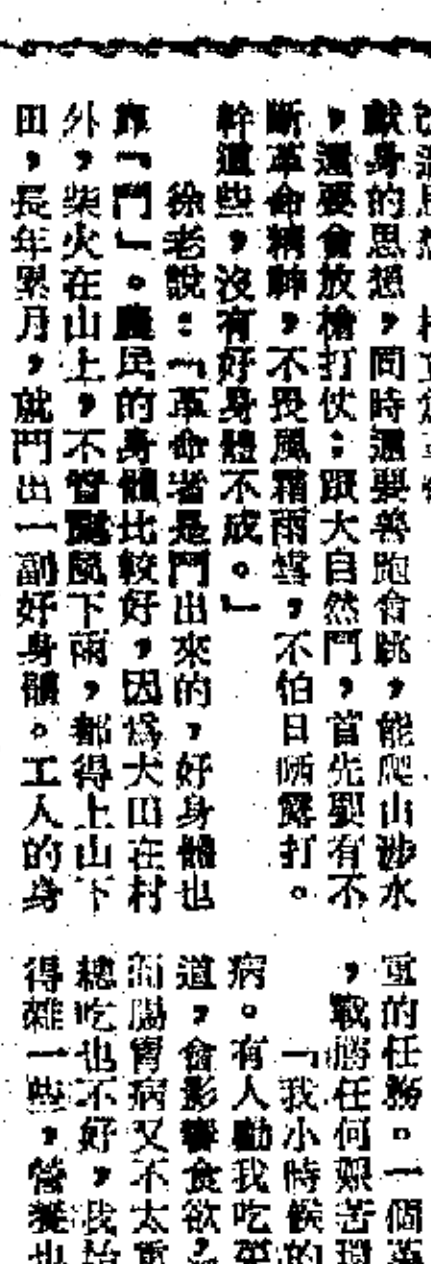 獻身的思想，同時還要善跑會跳，能爬山涉水
，還要會放槍打仗；跟大自然鬥，首先要有不
斷革命精神，不畏風霜雨雪，不怕日晒露打。
幹這些，沒有好身體不成。」
徐老說：「革命者是鬥出來的，好身體也
靠「鬥」。農民的身體比較好，因爲大田在村
外，柴火在山上，不管颳風下雨，都得上山下
田，長年累月，就鬥出一副好身體。工人的身
重的任務。一個革
，戰勝任何艱苦環
「我小時候的
病。有人勸我吃葷
道，會影響食欲，
而腸胃病又不太重
總吃也不好，我始
得雜一些，營養也